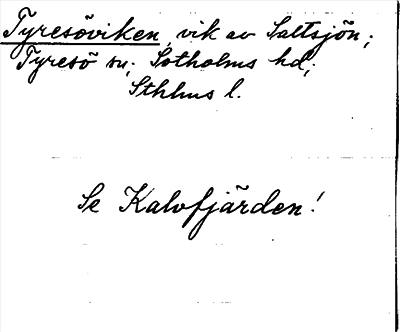 Tyresöviken, vik av Saltsjön;
Tyresö sn; Sotholms hd;
Sthlms l.
Se Kalvfjärden!